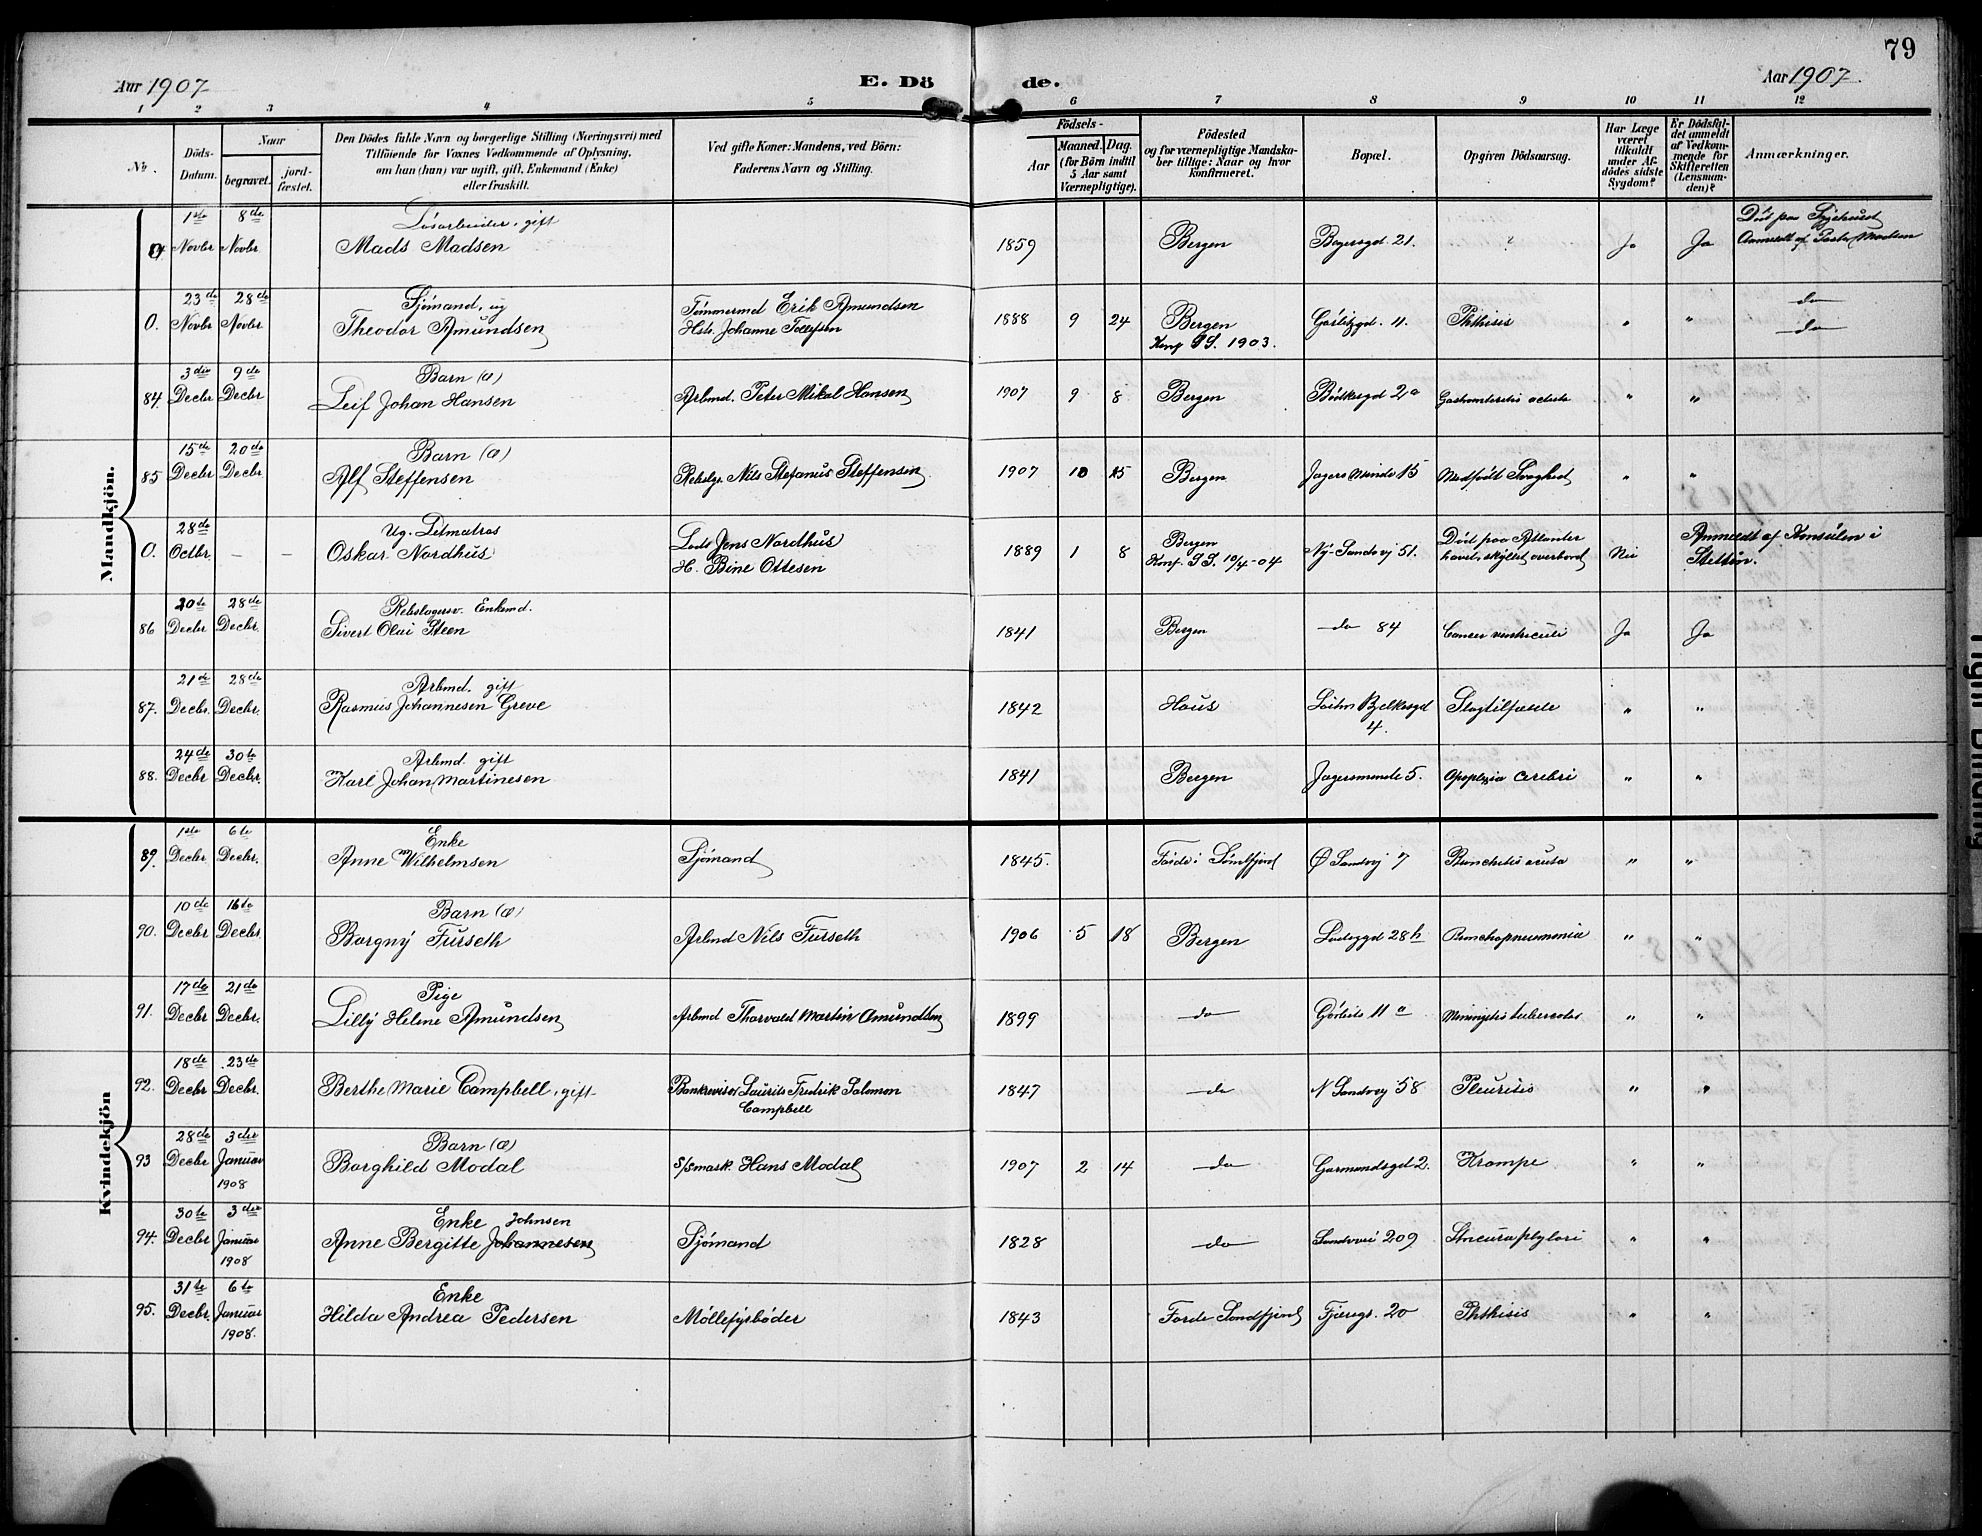 79
Aar 1907
E. Döde.
Aar 1907.
1 2 3 4 5 6 7 8 9 10 11 12
No.
Döds-Datum.
Naar
begravet.
jord-fæstet.
Den Dödes fulde Navn og borgerlige Stilling (Næringsvei) med
Tilföiende for Voxnes Vedkommende af Oplysning,
om han (hun) var ugift, gift, Enkemand (Enke)
eller fraskilt.
Ved gifte Koner: Mandens, ved Börn:
Faderens Navn og Stilling.
Födsels-
Aar
Maaned. Dag.
(for Börn indtil
5 Aar samt
Værnepligtige).
Födested
og for værnepligtige Mandska-
ber tillige: Naar og hvor
konfirmeret.
Bopæl.
Opgiven Dödsaarsag.
Har Læge
været
tilkaldt
under Af-
dödes sidste
Sygdom?
Er Dödsfal-
det anmeldt
af Vedkom-
mende for
Skifteretten
(Lensman-
den)?
Anmærkninger.
Mandkjön.
1ste Novbr 8de Novbr Løsarbeider, gift
Mads Madsen 1859 Bergen 21. " Ja Ja Død paa Sygehuset
Anmeldt af Pastor Madsen
0. 23de Novbr 28de Novbr Sjømand, ug
Theodor Amundsen Tømmermd Erik Amundsen
Johanne Tollefsen 1888 9 24 Bergen
Konf 1903. 11. Phthisis " " do
do
84. 3die Decbr 9de Decbr Barn (æ)
Leif Johan Hansen Arbmd. Peter Mikal Hansen 1907 9 8 Bergen Bødkergd 2a " "
85 15de Decbr 20de Decbr Barn (æ)
Alf Steffensen Rebslgr. Nils Stefanus Steffensen 1907 10 15 Bergen Jægersminde 15 Medfødt Svaghed " "
0. 28de Octbr. – – Ug. Letmatros
Oskar Nordhus Lods Jens Nordhus
H. Bine Ottesen 1889 1 8 Bergen
Konf. 10/4-04 Ny-Sandvj 51. Død paa Atlanter
havet, skyllet overbord Nei Anmeldt af Konsulen i
Stettin.
86 20de Decbr 28de Decbr. Rebslagersv. Enkemd.
Sivert Olai Steen 1841 Bergen do 84 Cancer ventriculi Ja Ja
87. 21de Decbr. 28de Decbr. Arbmd. gift
Rasmus Johannesen Greve 1842 Haus 4. Slagtilfælde " "
88. 24de Decbr 30te Decbr. Arbmd. gift
Karl Johan Martinesen 1841 Bergen Jægersminde 5. Apoplexia cerebri " "
Kvindekjön
89. 1ste Decbr 6te Decbr. Enke
Anne Wilhelmsen Sjømand 1845. Førde i Søndfjord Ø Sandvj 7 Bronchitis acuta " "
90. 10de Decbr 16te Decbr. Barn (æ)
Borgny Furseth Arbmd Nils Furseth 1906 5 18 Bergen 28b Bronchopneumonia " "
91. 17de Decbr 21de Decbr. Pige
Lilly Helene Amundsen Arbmd Thorvald Martin Amundsen 1899 do 11a " "
92. 18de Decbr 23de Decbr. Berthe Marie Campbell, gift Bankrevisor Laurits Fredrik Salomon
Campbell 1847 do N Sandvj 58 Pleuritis " "
93 28de Decbr 3die Januar 1908 Barn (æ)
Borghild Modal S/Smask. Hans Modal 1907 2 14 do Garmandsgd 2. Krampe " "
94. 30te Decbr 3die Januar 1908 Enke Johnsen
Anne Bergitte Johannesen Sjømand 1828 do Sandvei 209 pylori " "
95. 31te Decbr. 6te Januar 1908. Enke
Hilda Andrea Pedersen Møllefyrbøder 1843 Førde Søndfjord Fjæregr. 20 Phthisis " "